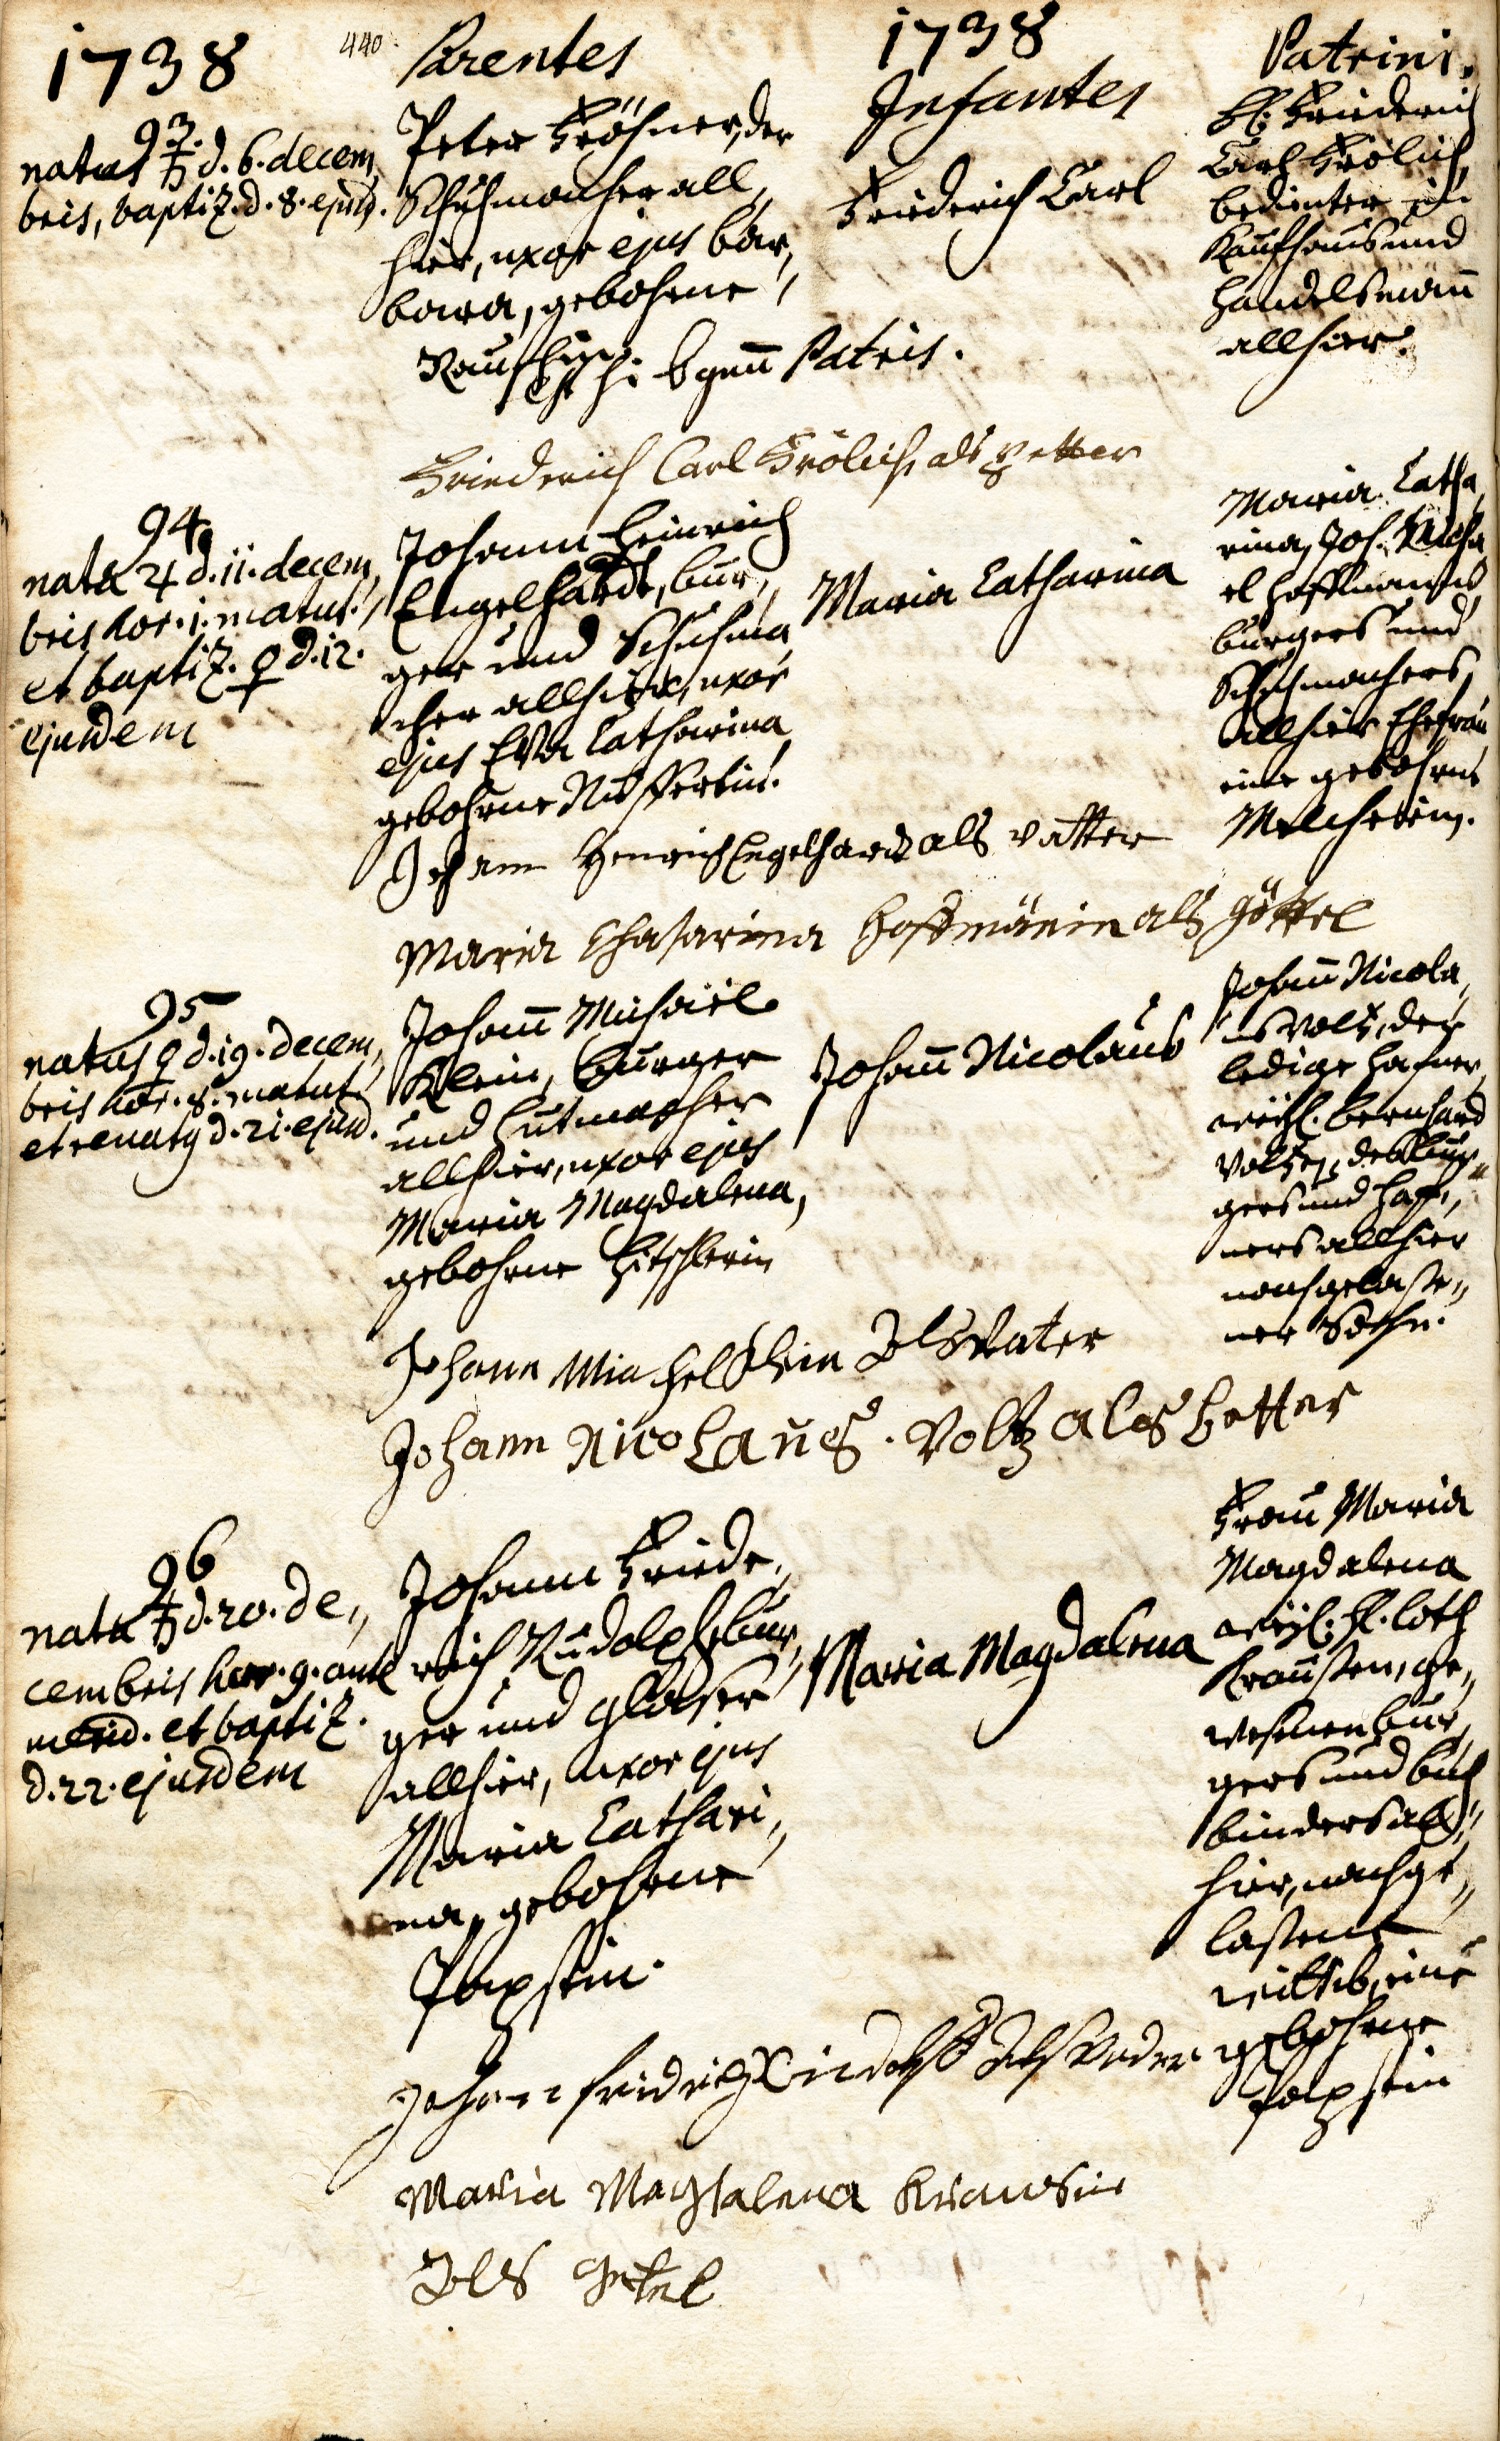 1738
440.
Parentes
1738
Infantes
Patrini.
93.
natus ♄ d. 6. decem,
bris, baptiz. d. 8. ejusd.
Peter Fröhner, der
Schuhmacher all,
hier, uxor ejus bar,
bara, gebohrne
Friederich Carl
H. Friederich
Carl Frölich,
bedienter im
Kauffhaus und
Handelsmañ
allhier.
Patris.
Friederich Carl Frölich, als Petter
94.
nata ♃ d. 11. decem,
bris hor. 1. matut.
et baptiz. ♀ d. 12.
ejusdem
Johann Heinrich
Engelhardt, bur,
ger und Schuhma,
cher allhier, uxor
ejus Eva Catharina
gebohrne
Maria Catharina
Maria Catha,
rina, Joh. Micha
el Hoffmanns
burgers und
Schuhmachers,
allhier Ehefrau
eine gebohrne
Johann Henrich Engelhard als vatter
Maria Chatarina Hoffmänin als göttel
95
natus ♀ d. 19. decem,
bris hor. 8. matut.
et renatus d. 21. ejusd.
Johañ Michael
Klein, burger
und Hutmacher
allhier, uxor ejus
Maria Magdalena,
gebohrne
Johañ Nicolaus
Johañ Nicola,
us Voltz, der
ledige hafner,
weyl. Bernhard
Voltzen, des bur,,
gers und Haff,,
ners allhier
nachgelasse,,
ner Sohn.
Johann Michel Klein Als Vater
Johann Nicolaus. Voltz als Petter
96
nata ♄ d. 20. de,,
cembris hor. 9. ante
merid. et baptiz.
d. 22. ejusdem
Johann Friede,
rich Rudolph, bur,
ger und glaser
allhier, uxor ejus
Maria Cathari,,
na, gebohrne
Papstin.
Maria Magdalena
Frau Maria
Magdalena
weyl. H. Loth
Kraussen, ge,
wesenen bur,
gers und buch
binders all,,
hier, nachge,,
lassene
wittib, eine
gebohrne
Papstin
Johann Fridrich Rudolff Als Vader
Maria Magdalena Krausin
Als Getel